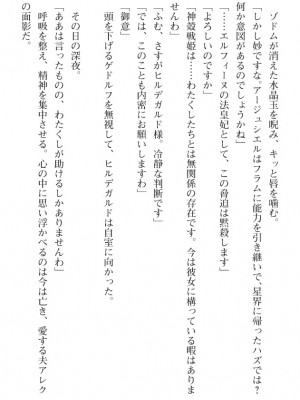 ゾドムが消えた水晶玉を睨み、キッと唇を噛む。
「しかし妙ですな。アージュシエルはフラムに能力を引き継いで、星界に帰ったハズでは？
何か意図があるのでしょうかね」
「……エルフィーヌの法皇妃として、この脅迫は黙殺します」
「よろしいのですか」
「神殻戦姫は……わたくしたちとは無関係の存在です。今は彼女に構っている暇はありま
せんわ」
「ふむ、さすがヒルデガルド様。冷静な判断です」
「では、このことも内密にお願いしますわ」
「御意」
頭を下げるゲドルフを無視して、ヒルデガルドは自室に向かった。
その日の深夜。
「ああは言ったものの、わたくしが助けるしかありませんわ」
呼吸を整え、精神を集中させる。心の中に思い浮かべるのは今は亡き、愛する夫アレク
の面影だ。